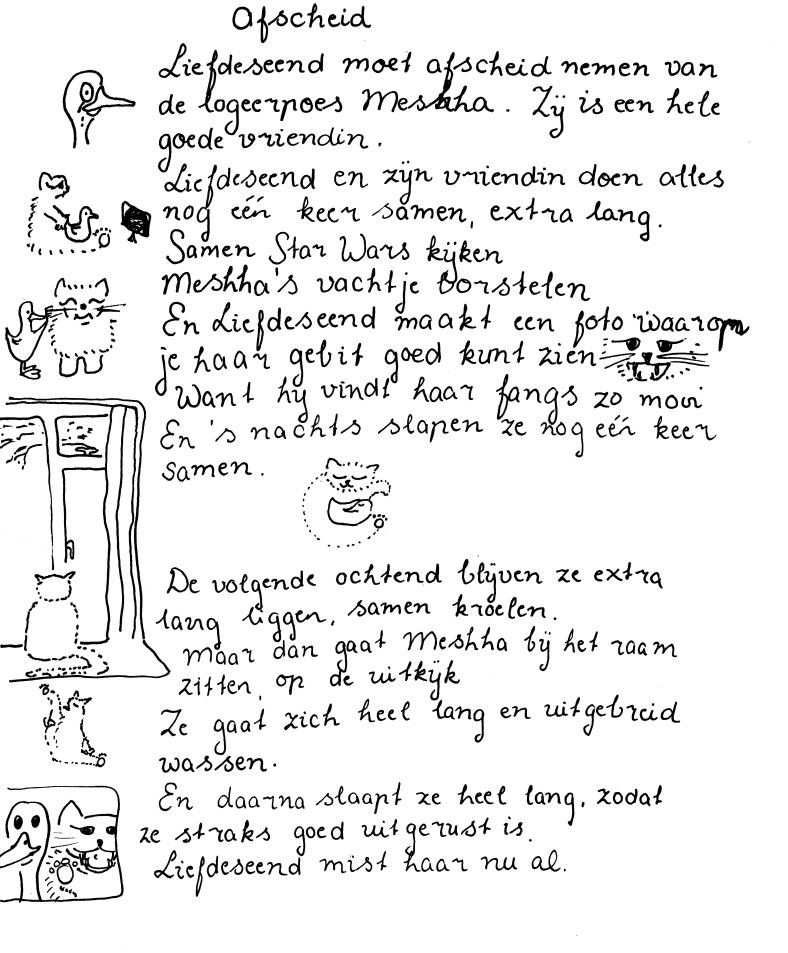 Afscheid
Liefdeseend moet afscheid nemen van
de logeerpoes Meshha. Zij is een hele
goede vriendin.
Liefdeseend en zijn vriendin doen alles
nog één keer samen, extra lang.
Samen Star Wars kijken
Meshha's vachtje borstelen
En Liefdeseend maakt een foto waarom
je haar gebit goed kunt zien
Want hij vindt haar fangs zo mooi
En 's nachts slapen ze nog één keer
samen.
De volgende ochtend blijven ze extra
lang liggen, samen kroelen.
Maar dan gaat Meshha bij het raam
zitten, op de uitkijk
Ze gaat zich heel lang en uitgebreid
wassen.
En daarna slaapt ze heel lang, zodat
ze straks goed uitgerust is.
Liefdeseend mist haar nu al.